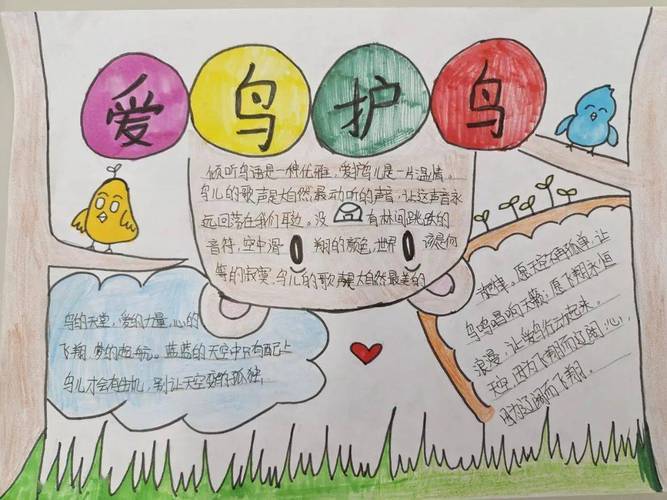 爱鸟护鸟
倾听鸟语是一种优雅,爱护鸟儿是一片温情。
鸟儿的歌声是大自然最动听的声音,让这声音永
远回荡在我们耳边。没有林间跳跃的
音符,空中滑翔的颜色,世界该是何
等的寂寞,鸟儿的歌声是大自然最美的
旋律。愿天空不再孤单,让
鸟鸣唱响天籁;愿飞翔永恒
浪漫,让我们行动起来。
天空,因为飞翔而辽阔;心,
因为辽阔而飞翔。
鸟的天堂,爱的力量,心的
飞翔,梦的起航。蓝蓝的天空中只有配上
鸟儿才会有生机,别让天空变的孤独。